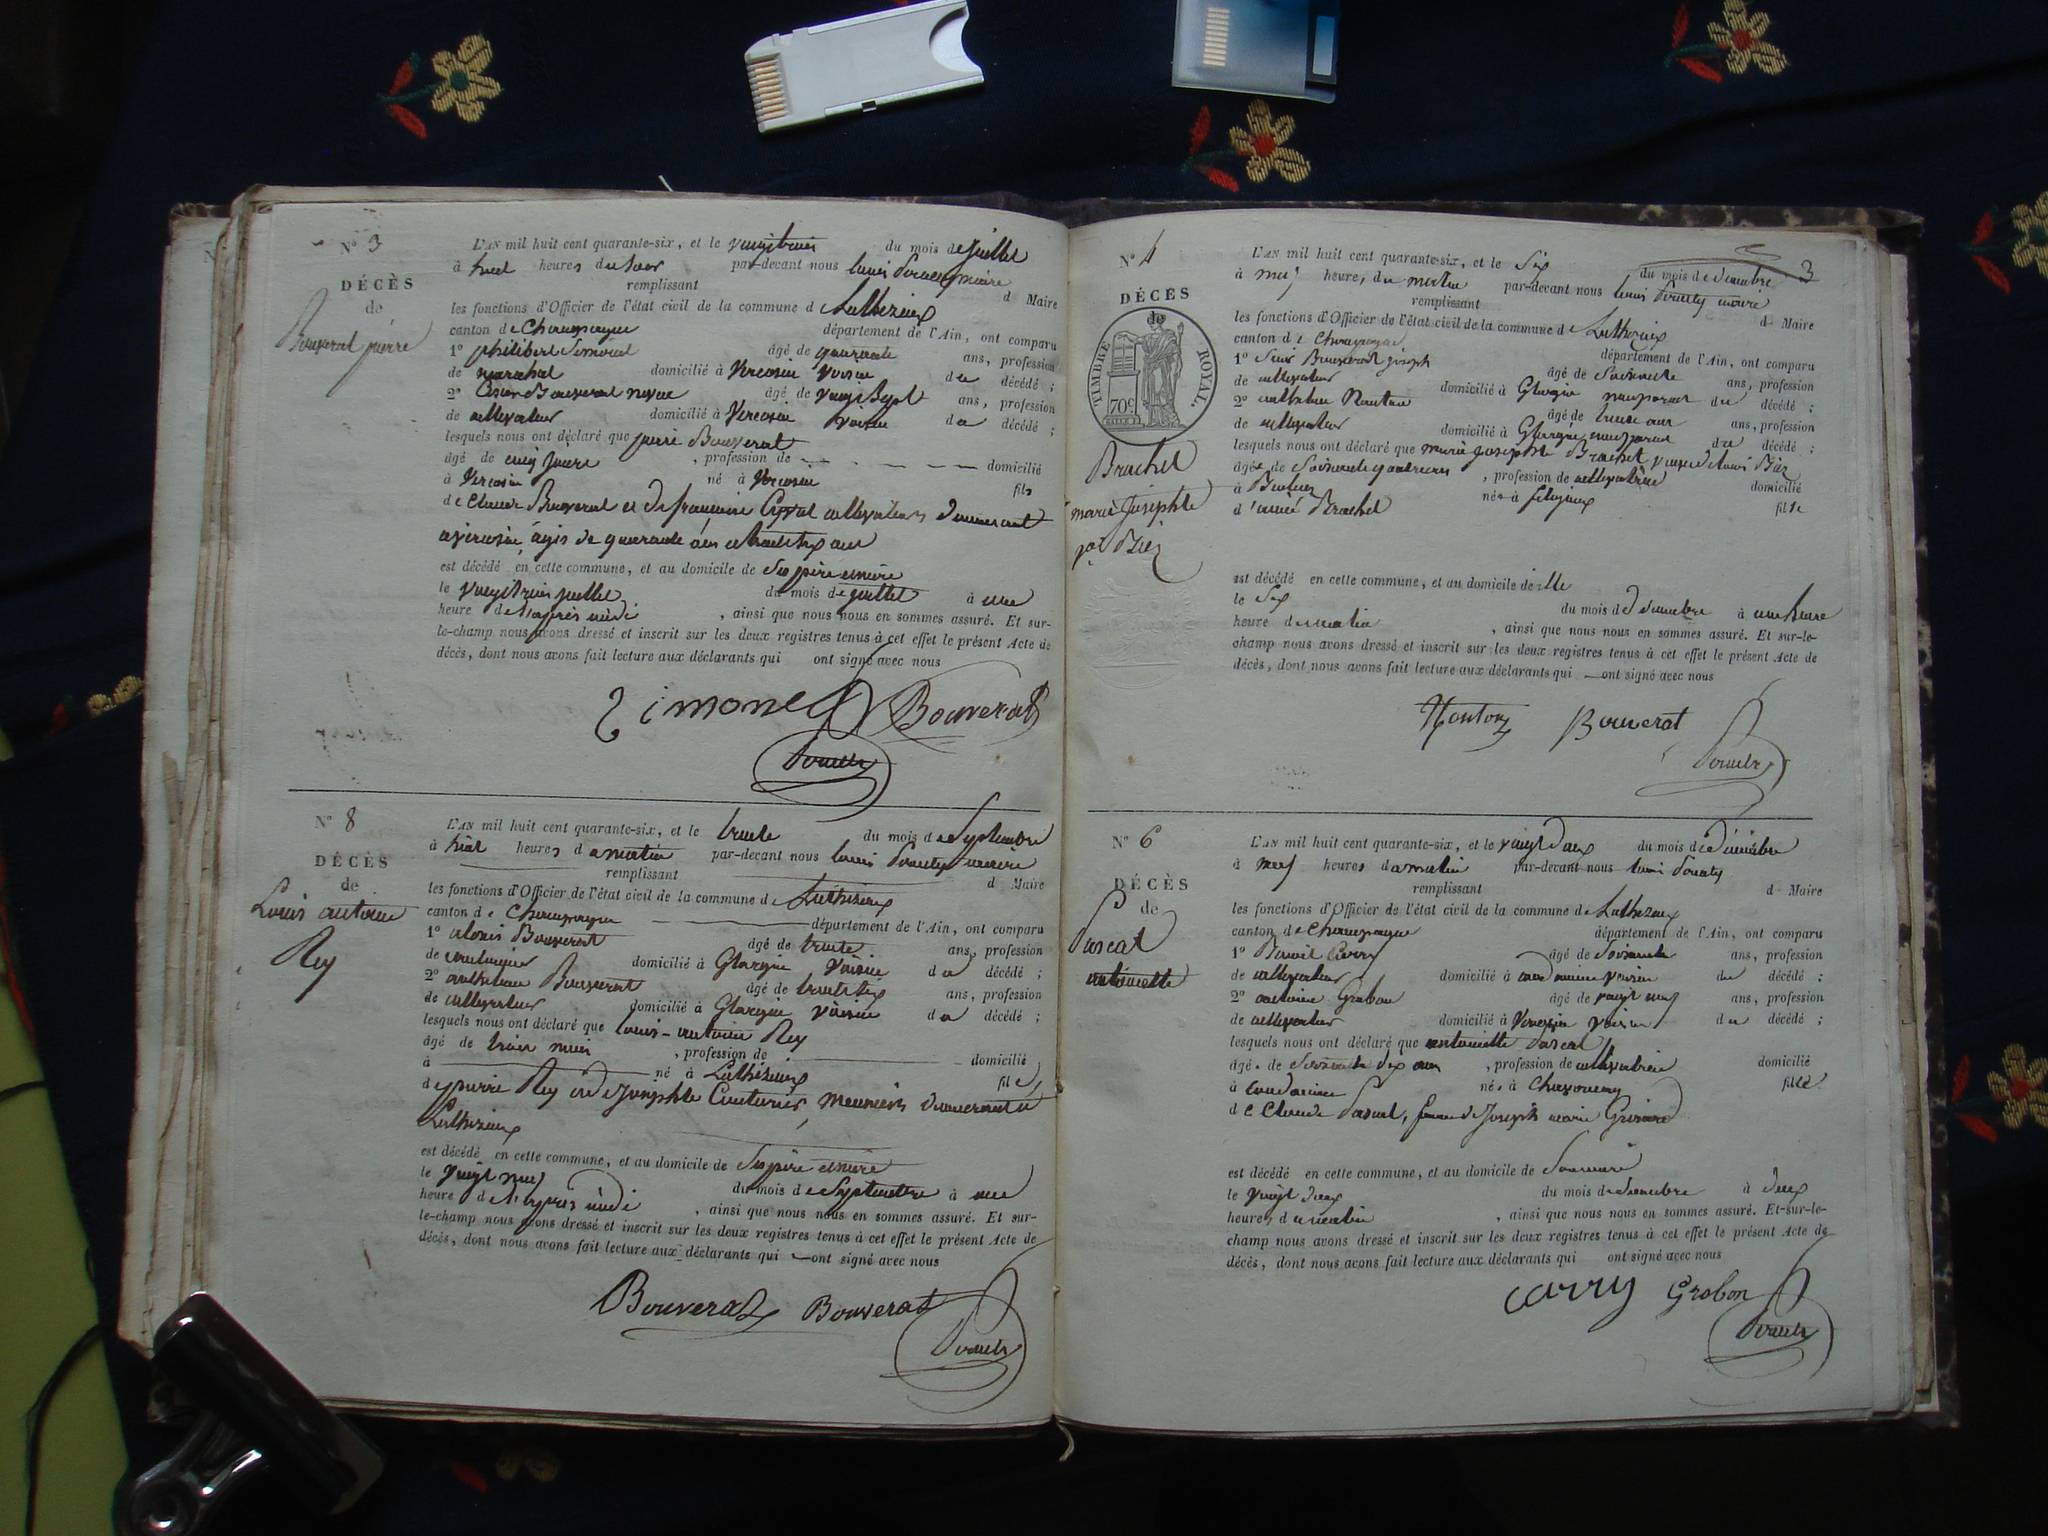 N° 3
DÉCÈS
de
Bouverat pierre
L'AN mil huit cent quarante-six, et le vingt trois du mois de juillet
à huit heures du soir par-devant nous louis maire
remplissant d Maire
les fonctions d'Officier de l'état civil de la commune de Luthezieux
canton de Champagne département de l'Ain, ont comparu
1° philibert Simonet âgé de quarante ans, profession
de marechal domicilié à Vercosin voisin du décédé ;
2° Bouverat âgé de vingt Sept ans, profession
de cultivateur domicilié à Vercosin voisin du décédé ;
lesquels nous ont déclaré que pierre Bouverat
âgé de cinq jours , profession de — domicilié
à Vercosin né à Vercosin fils
de Claude Bouverat et de françoise cultivateurs demeurant
à Vercosin, âgés de quarante ans et trente six ans
est décédé en cette commune, et au domicile de Ses père et mère
le vingt trois juillet du mois de juillet à une
heure de l'après midi , ainsi que nous nous en sommes assuré. Et sur-
le-champ nous avons dressé et inscrit sur les deux registres tenus à cet effet le présent Acte de
décès, dont nous avons fait lecture aux déclarants qui ont signé avec nous
Simonet Bouverat
N° 8
DÉCÈS
de
Louis antoine
Rey
L'AN mil huit cent quarante-six, et le trente du mois de Septembre
à huit heures du matin par-devant nous louis maire
remplissant d Maire
les fonctions d'Officier de l'état civil de la commune de Luthezieux
canton de Champagne département de l'Ain, ont comparu
1° Bouverat âgé de trente ans, profession
de domicilié à Glargin voisin du décédé ;
2° anthelme Bouverat âgé de trente six ans, profession
de cultivateur domicilié à Glargin voisin du décédé ;
lesquels nous ont déclaré que louis-antoine Rey
âgé de trois mois , profession de — domicilié
à — né à Luthezieux fils
de pierre Rey et de Josephte Couturier, meuniers demeurant à
Luthezieux
est décédé en cette commune, et au domicile de Ses père et mère
le vingt neuf du mois de Septembre à une
heure de l'après midi , ainsi que nous nous en sommes assuré. Et sur-
le-champ nous avons dressé et inscrit sur les deux registres tenus à cet effet le présent Acte de
décès, dont nous avons fait lecture aux déclarants qui — ont signé avec nous
Bouverat Bouverat
3
N° 4
DÉCÈS
de
TIMBRE ROYAL.
70c.
Brachet
marie Josephte
L'AN mil huit cent quarante-six, et le Six du mois de décembre
à neuf heures du matin par-devant nous louis maire
remplissant d Maire
les fonctions d'Officier de l'état civil de la commune de Luthezieux
canton de Champagne département de l'Ain, ont comparu
1° Bouverat joseph âgé de Soixante ans, profession
de cultivateur domicilié à Glargin non parent du décédé ;
2° anthelme âgé de trente ans ans, profession
de cultivateur domicilié à Glargin non parent du décédé ;
lesquels nous ont déclaré que marie josephte Brachet veuve de louis
âgée de Soixante quatre ans , profession de cultivatrice domicilié
à née à fille
d'aimé Brachet
est décédé en cette commune, et au domicile d'elle
le Six du mois de décembre à une heure
heure du matin , ainsi que nous nous en sommes assuré. Et sur-le-
champ nous avons dressé et inscrit sur les deux registres tenus à cet effet le présent Acte de
décès, dont nous avons fait lecture aux déclarants qui — ont signé avec nous
Bouverat
N° 6
DÉCÈS
de
Pascal
antoinette
L'AN mil huit cent quarante-six, et le vingt deux du mois de décembre
à neuf heures du matin par-devant nous louis
remplissant d Maire
les fonctions d'Officier de l'état civil de la commune de Luthezieux
canton de Champagne département de l'Ain, ont comparu
1° Benoit Carry âgé de Soixante ans, profession
de cultivateur domicilié à voisin du décédé ;
2° antoine Grobon âgé de vingt neuf ans, profession
de cultivateur domicilié à voisin du décédé ;
lesquels nous ont déclaré que antoinette Pascal
âgée de Soixante dix ans , profession de cultivatrice domicilié
à née à Chavornay fille
de Claude Pascal, femme de Joseph marie
est décédé en cette commune, et au domicile de Son mari
le vingt deux du mois de décembre à deux
heures du matin , ainsi que nous nous en sommes assuré. Et-sur-le-
champ nous avons dressé et inscrit sur les deux registres tenus à cet effet le présent Acte de
décès, dont nous avons fait lecture aux déclarants qui ont signé avec nous
carry Grobon